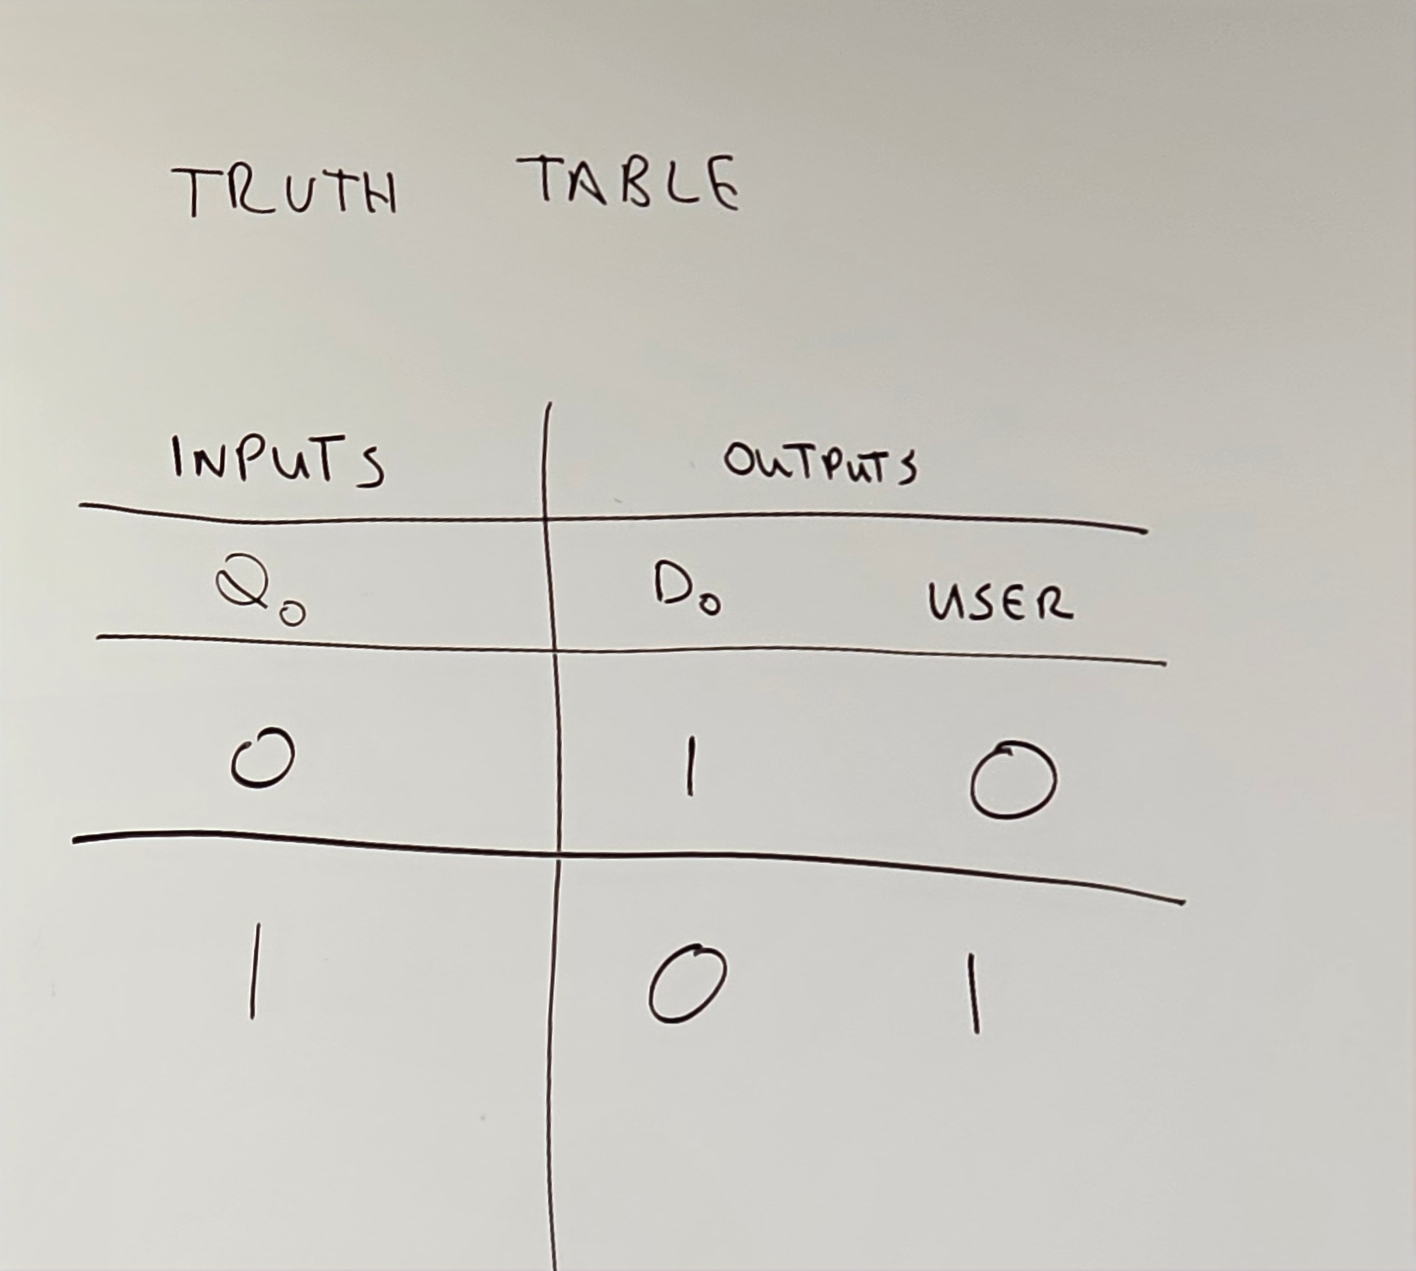 TRUTH TABLE
INPUTS OUTPUTS
Q₀ D₀ USER
0 1 0
1 0 1